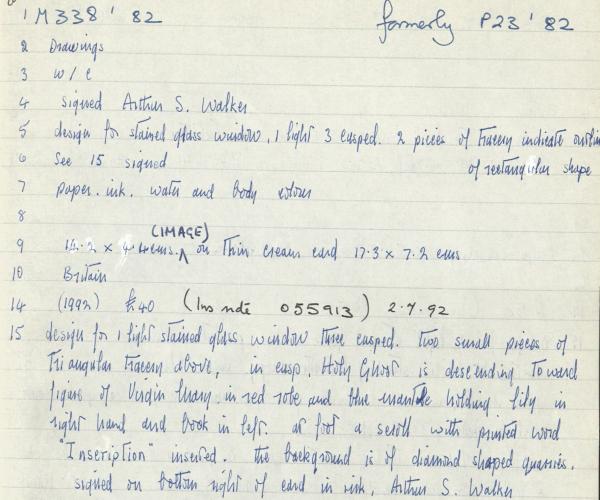 1 M338 ' 82 formerly P23 ' 82
2 Drawings
3 w/c
4 signed Arthur S. Walker
5 design for stained glass window, 1 light 3 cusped. 2 pieces of tracery indicate outline
6 See 15 signed of rectangular shape
7 paper. ink. water and body colour
8
(IMAGE)
9 14.2 x 4.4cms. on thin cream card 17.3 x 7.2 cms
10 Britain
14 (1992) £40 (Ins note 055913) 2.7.92
15 design for 1 light stained glass window three cusped. two small pieces of
triangular tracery above, in cusp Holy Ghost is descending toward
figure of Virgin Mary in red robe and blue mantle holding lily in
right hand and book in left. at foot a scroll with printed word
"Inscription" inserted. the background is of diamond shaped quarries.
signed on bottom right of card in ink, Arthur S. Walker